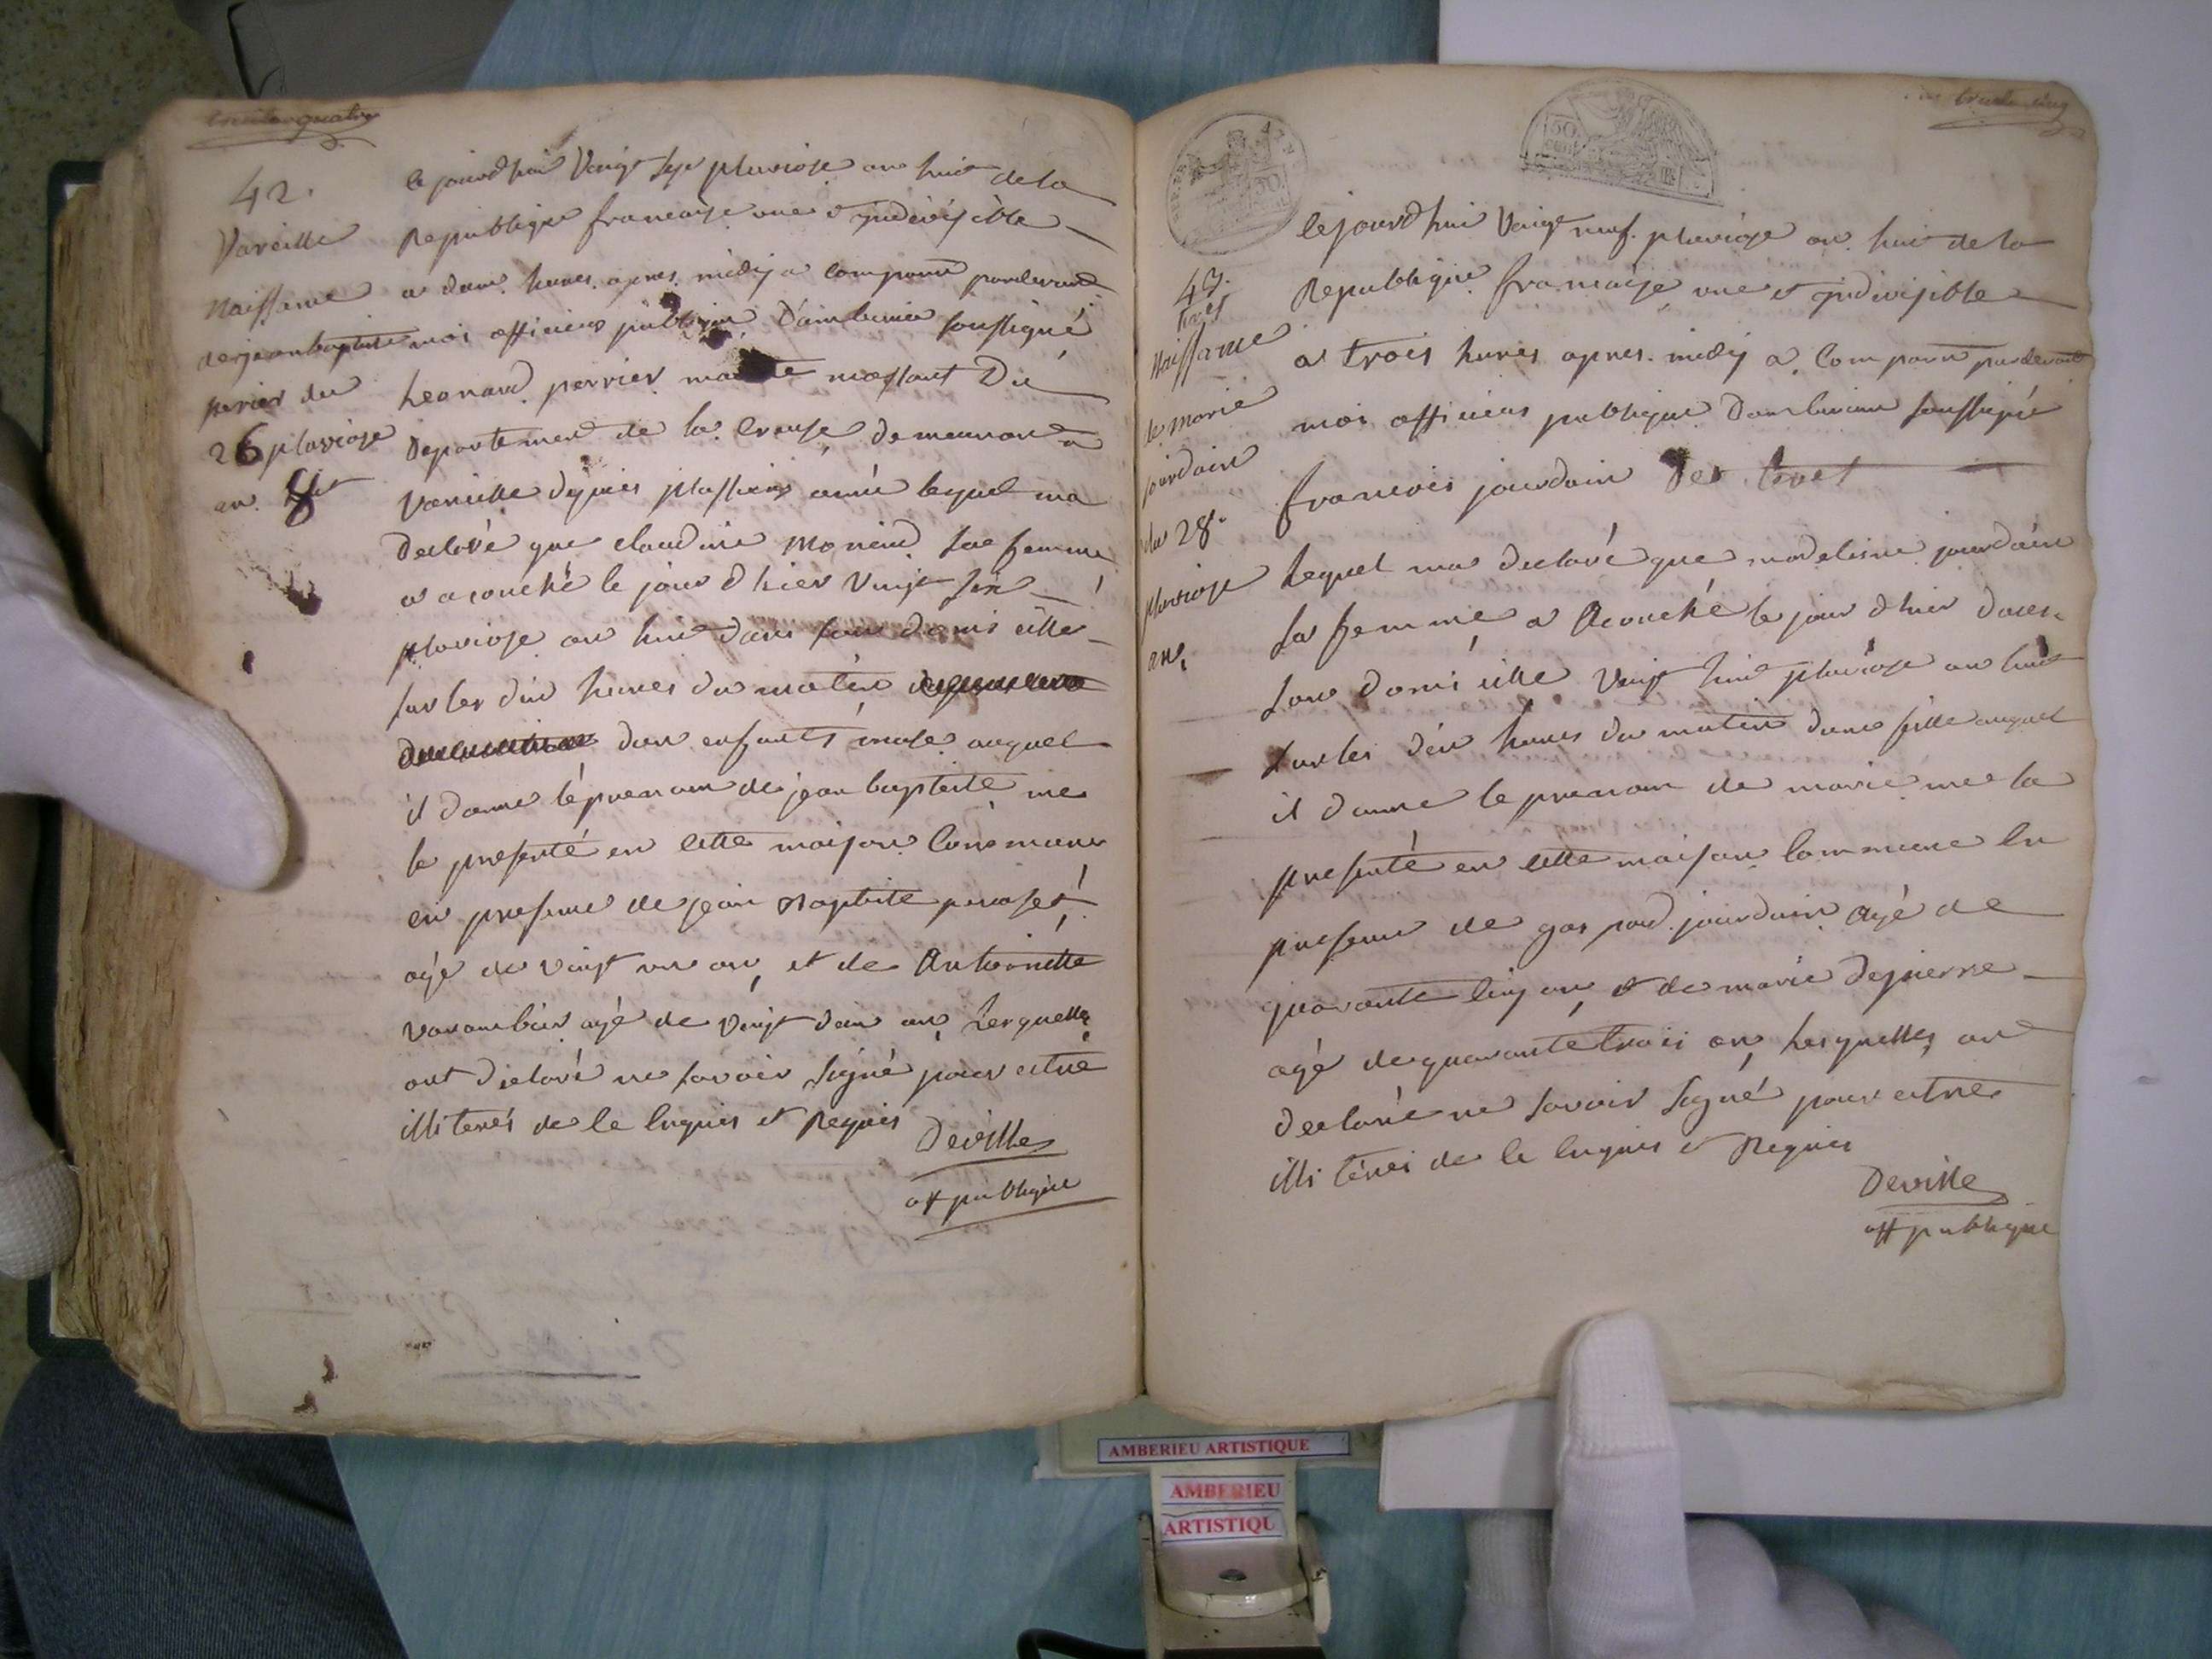 trente quatre
42.
Vareille
Naissance
de jean baptiste
perier du
26 pluviose
an 8
le jourdhui Vingt sept pluviose an huit de la
Republique francaise une et yndivisible
a deux heures apres midy a comparu pardevant
moi officiers publique d'amberieu soussigné
Leonard perrier maitre massont Du
Departement de la Creuse demeurant a
Vareille depuis plussieurs année lequel ma
declaré que claudine sa femme
a acouché le jour dhier vingt six
pluviose an huit dans son domicille
sur les dix heures du matin
dun enfants male auquel
il donne le prenom de jean baptiste me
le presenté en cette maison Commune
en presence de jean Baptiste
agé de vingt un an, et de Antoinette
agé de vingt deux an, Lesquelle
ont declaré ne savoir signé pour estre
illiterés de le enquis et Requis
Deville
off publique
trente cinq
50.
30.
43.
tret
Naissance
de marie
jourdain
du 28.
pluviose
an
le jourdhui Vingt neuf pluviose an huit de la
Republique francaise une et yndivisible
a trois heures apres midy a Comparu pardevant
moi officiers publique damberieu soussigné
francois jourdain Des tret
Lequel ma declaré que madeleine jourdain
sa femme a acouché le jour dhier dans
son domicille Vingt huit pluviose an huit
sur les dix heures du matin dune fille auquel
il donne le prenom de marie me la
presenté en cette maison Commune En
presence de gaspard jourdain agé de
quarante cinq an, et de marie depierre
agé de quarante trois an, Lesquelles ont
declaré ne savoir signé pour estre
illiterés de le enquis et Requis
Deville
off publique
AMBERIEU ARTISTIQUE
AMBERIEU
ARTISTIQU